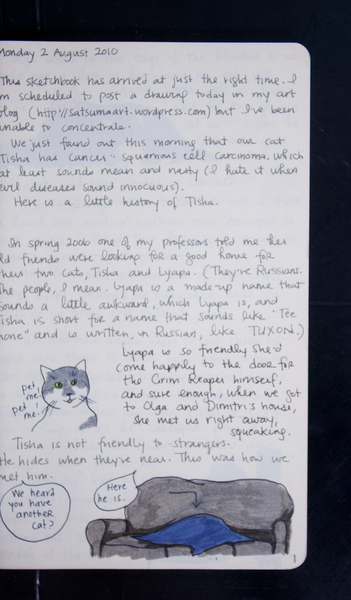 Monday 2 August 2010
This sketchbook has arrived at just the right time. I
am scheduled to post a drawing today in my art
blog (http://satsumaart.wordpress.com) but I've been
unable to concentrate.
We just found out this morning that our cat
Tisha has cancer - squamous cell carcinoma, which
at least sounds mean and nasty (I hate it when
evil diseases sound innocuous).
Here is a little history of Tisha.
In spring 2006 one of my professors told me her
old friends were looking for a good home for
their two cats, Tisha and Lyapa. (They're Russians.
The people, I mean. Lyapa is a made-up name that
sounds a little awkward, which Lyapa is, and
Tisha is short for a name that sounds like "Tee
hone" and is written, in Russian, like TUXON.)
Lyapa is so friendly she'd
come happily to the door for
the Grim Reaper himself,
and sure enough, when we got
to Olga and Dimitri's house,
she met us right away,
squeaking.
pet
me!
pet
me!
Tisha is not friendly to strangers.
He hides when they're near. This was how we
met him.
We heard
you have
another
cat?
Here
he is.
1